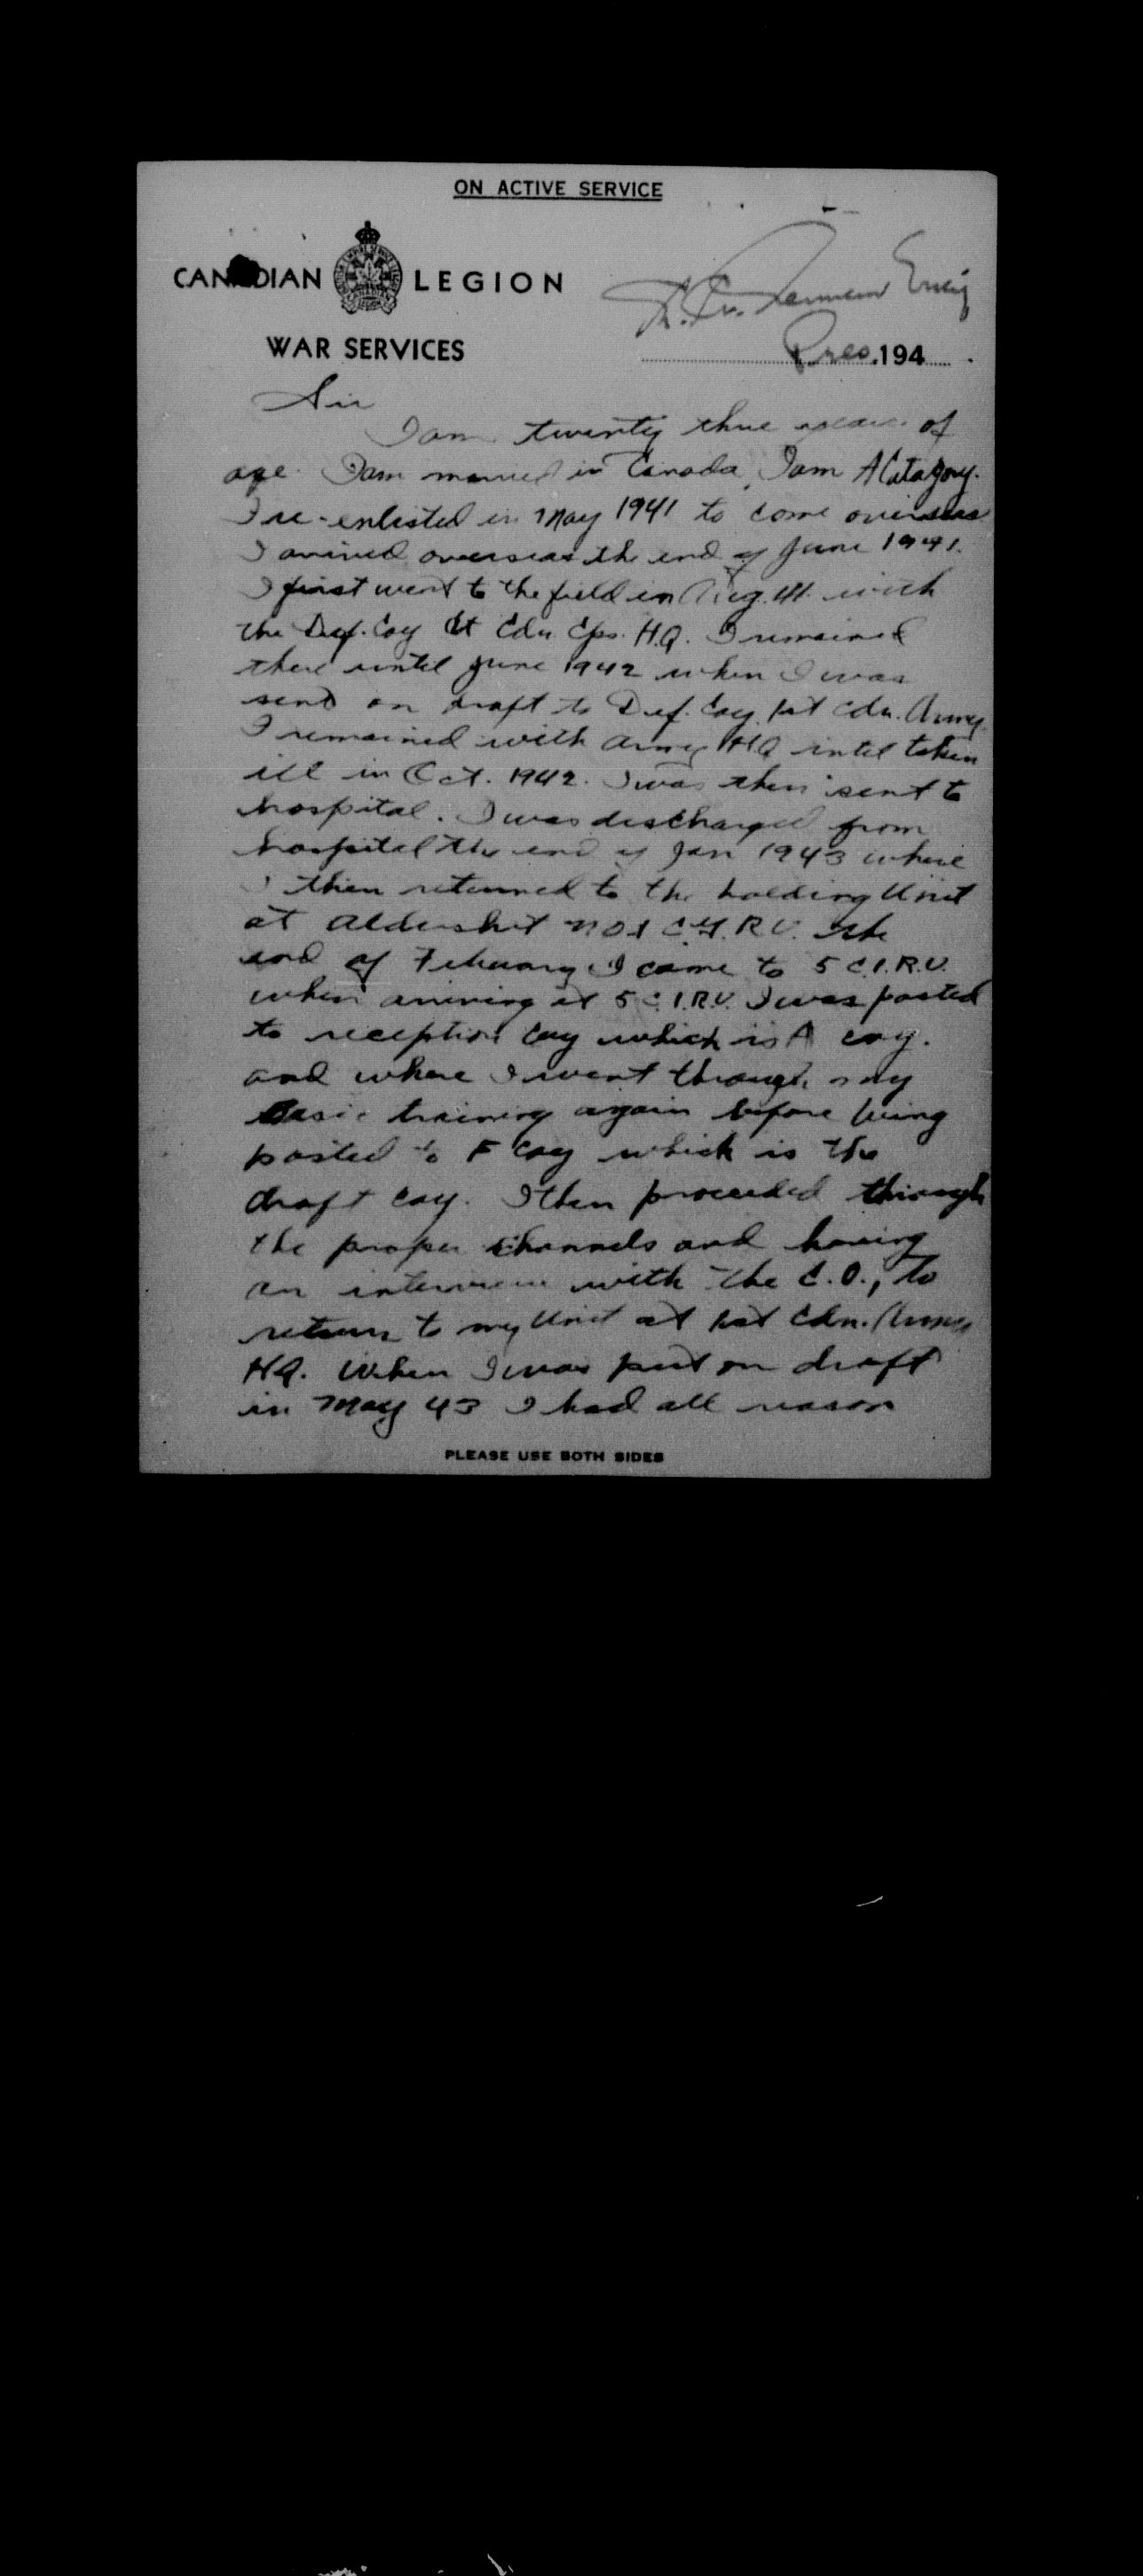 ON ACTIVE SERVICE
CANADIAN LEGION
WAR SERVICES
Pres. 194
Sir
I am twenty three years of
age. I am married in Canada. I am A Catagory.
I re-enlisted in May 1941 to come overseas
I arrived overseas the end of June 1941.
I first went to the field in Aug. 41. with
the Def. Coy 1st Cdn. Cps. H.Q. I remained
there until June 1942 when I was
sent on draft to Def. Coy. 1st Cdn. Army.
I remained with Army HQ until taken
ill in Oct. 1942. I was then sent to
hospital. I was discharged from
hospital the end of Jan 1943 where
I then returned to the holding Unit
at Aldershot No 1 R.U. the
end of Febuary I came to 5 C.I.R.U.
when arriving at 5 C.I.R.U. I was posted
to reception Coy which is A coy.
and where I went through my
Basic training again before being
posted to F Coy which is the
draft coy. I then proceeded through
the proper channels and having
an interview with the C.O., to
return to my Unit at 1st Cdn. Army
HQ. When I was put on draft
in May 43 I had all reason
PLEASE USE BOTH SIDES